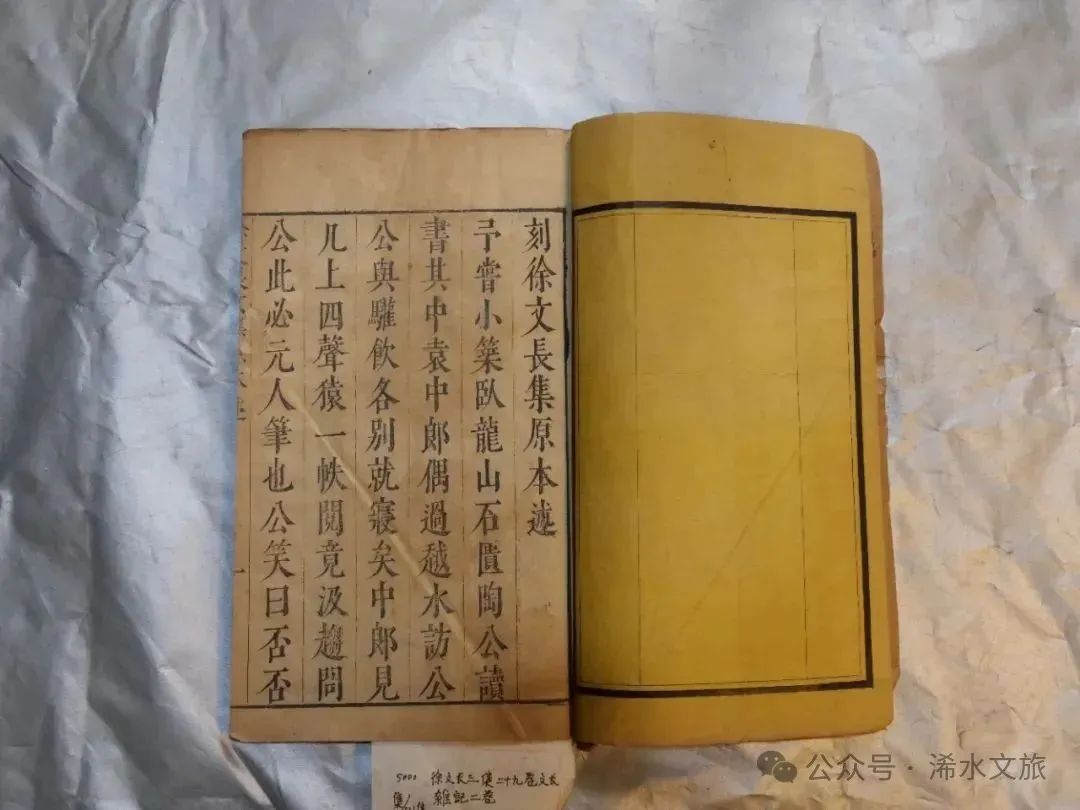 刻徐文長集原本述
予嘗小築臥龍山石匱陶公讀
書其中袁中郎偶過越水訪公
公與驩飲各別就寢矣中郎見
几上四聲猿一帙閱竟汲趨問
公此必元人筆也公笑曰否否
5000 徐文长三集二十九卷文长
雜記二卷
公众号·浠水文旅